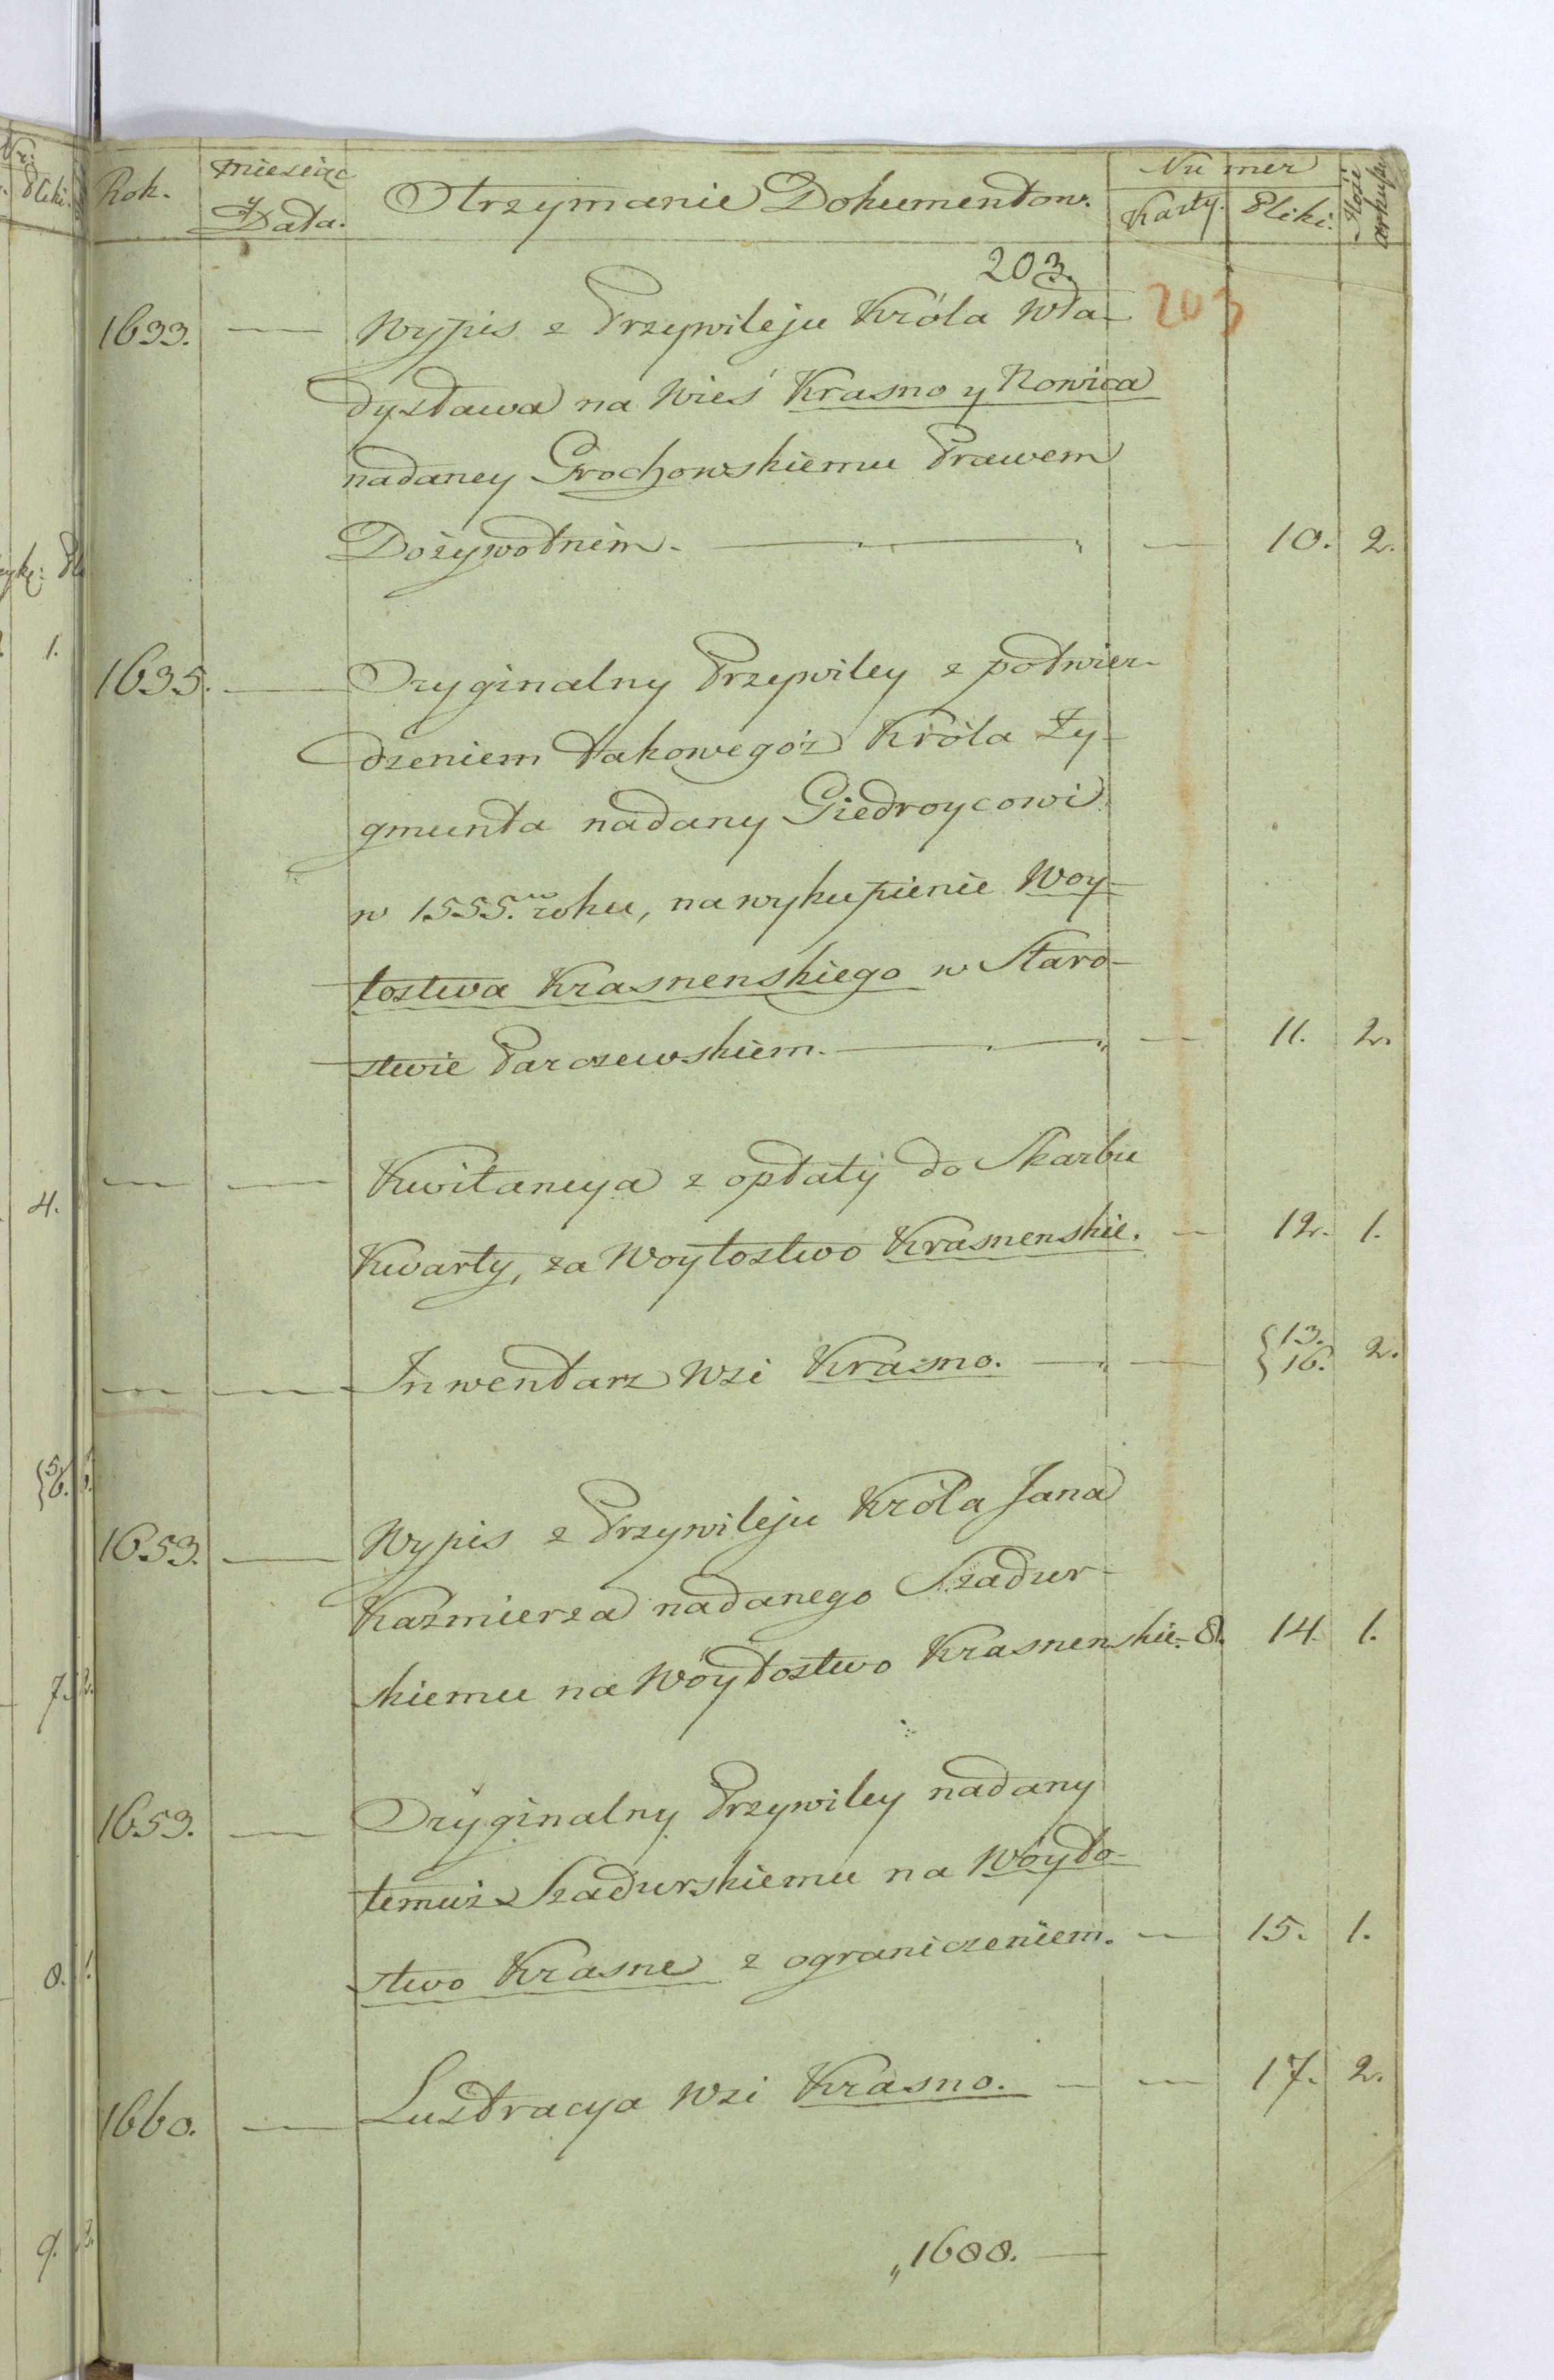 Rok. Miesiąc Data. Otrzymanie Dokumentow. Numer Karty. Pliki. Ilosć arkuszy
203.
203
1633. — Wypis z Przywileju Króla Wła-
dysława na Wieś Krasno y Nowica
nadaney Grochowskiemu Prawem
Dożywotnim. — — 10. 2.
1635. — Oryginalny Przywiley z potwier-
dzeniem takowegóż Króla Zy-
gmunta nadany Giedroycowi
w 1555. roku, na wykupienie Woy-
tostwa Krasnenskiego w Staro-
stwie Parczewskiem. — — 11. 2.
— — Kwitancya z opłaty do Skarbu
Kwarty, za Woytostwo Krasnenskie. — 12. 1.
— — Inwentarz Wsi Krasno. — — {13. 16. 2.
1653. — Wypis z Przywileju Króla Jana
Kazmierza nadanego Szadur-
skiemu na Woytostwo Krasnenskie.- 8. 14. 1.
1653. — Oryginalny Przywiley nadany
temuż Szadurskiemu na Woyto-
stwo Krasne z ograniczeniem. — 15. 1.
1660. — Lustracya Wsi Krasno. — — 17. 2.
„1688. —